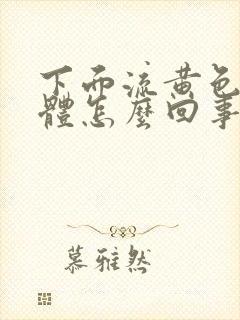 下面流黄色
體怎麼回事
慕雅然